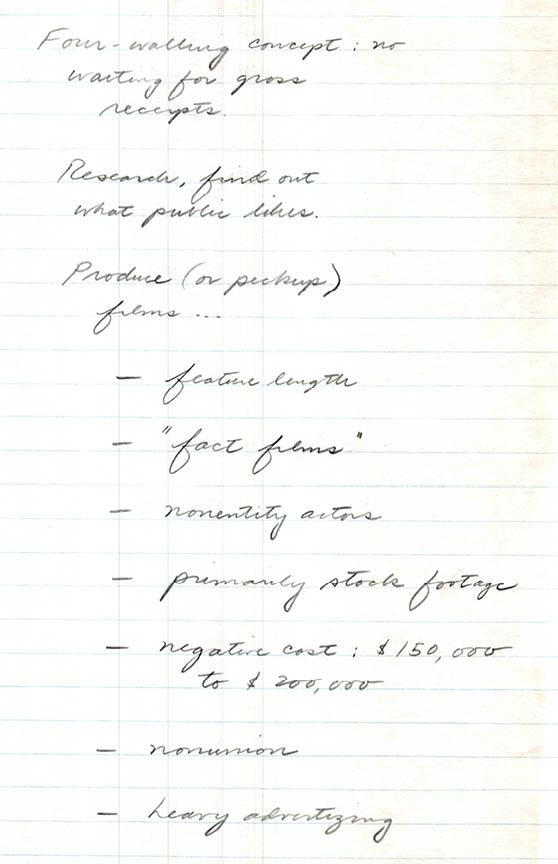 Four-walling concept : no
waiting for gross
receipts.
Research, find out
what public likes.
Produce (or pickup)
films ...
— feature length
— "fact films"
— nonentity actors
— primarily stock footage
— negative cost : $150,000
to $200,000
— nonunion
— heavy advertizing